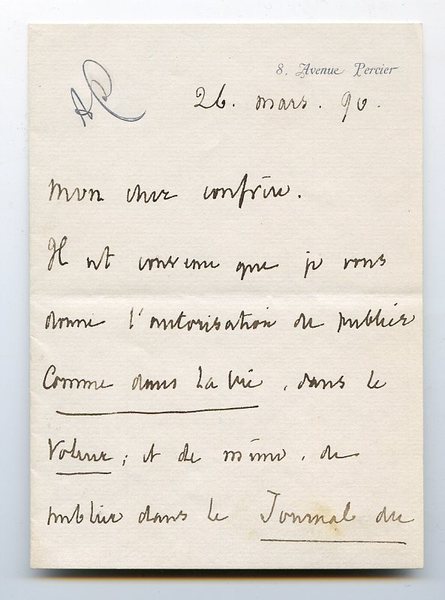 8, Avenue Percier
26. mars. 90.
Mon cher confrère.
Il est convenu que je vous
donne l'autorisation de publier
Comme dans la vie, dans le
Voleur ; et de même, de
publier dans le Journal du